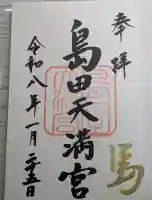 奉拝
島田天満宮
令和八年一月二十五日
馬